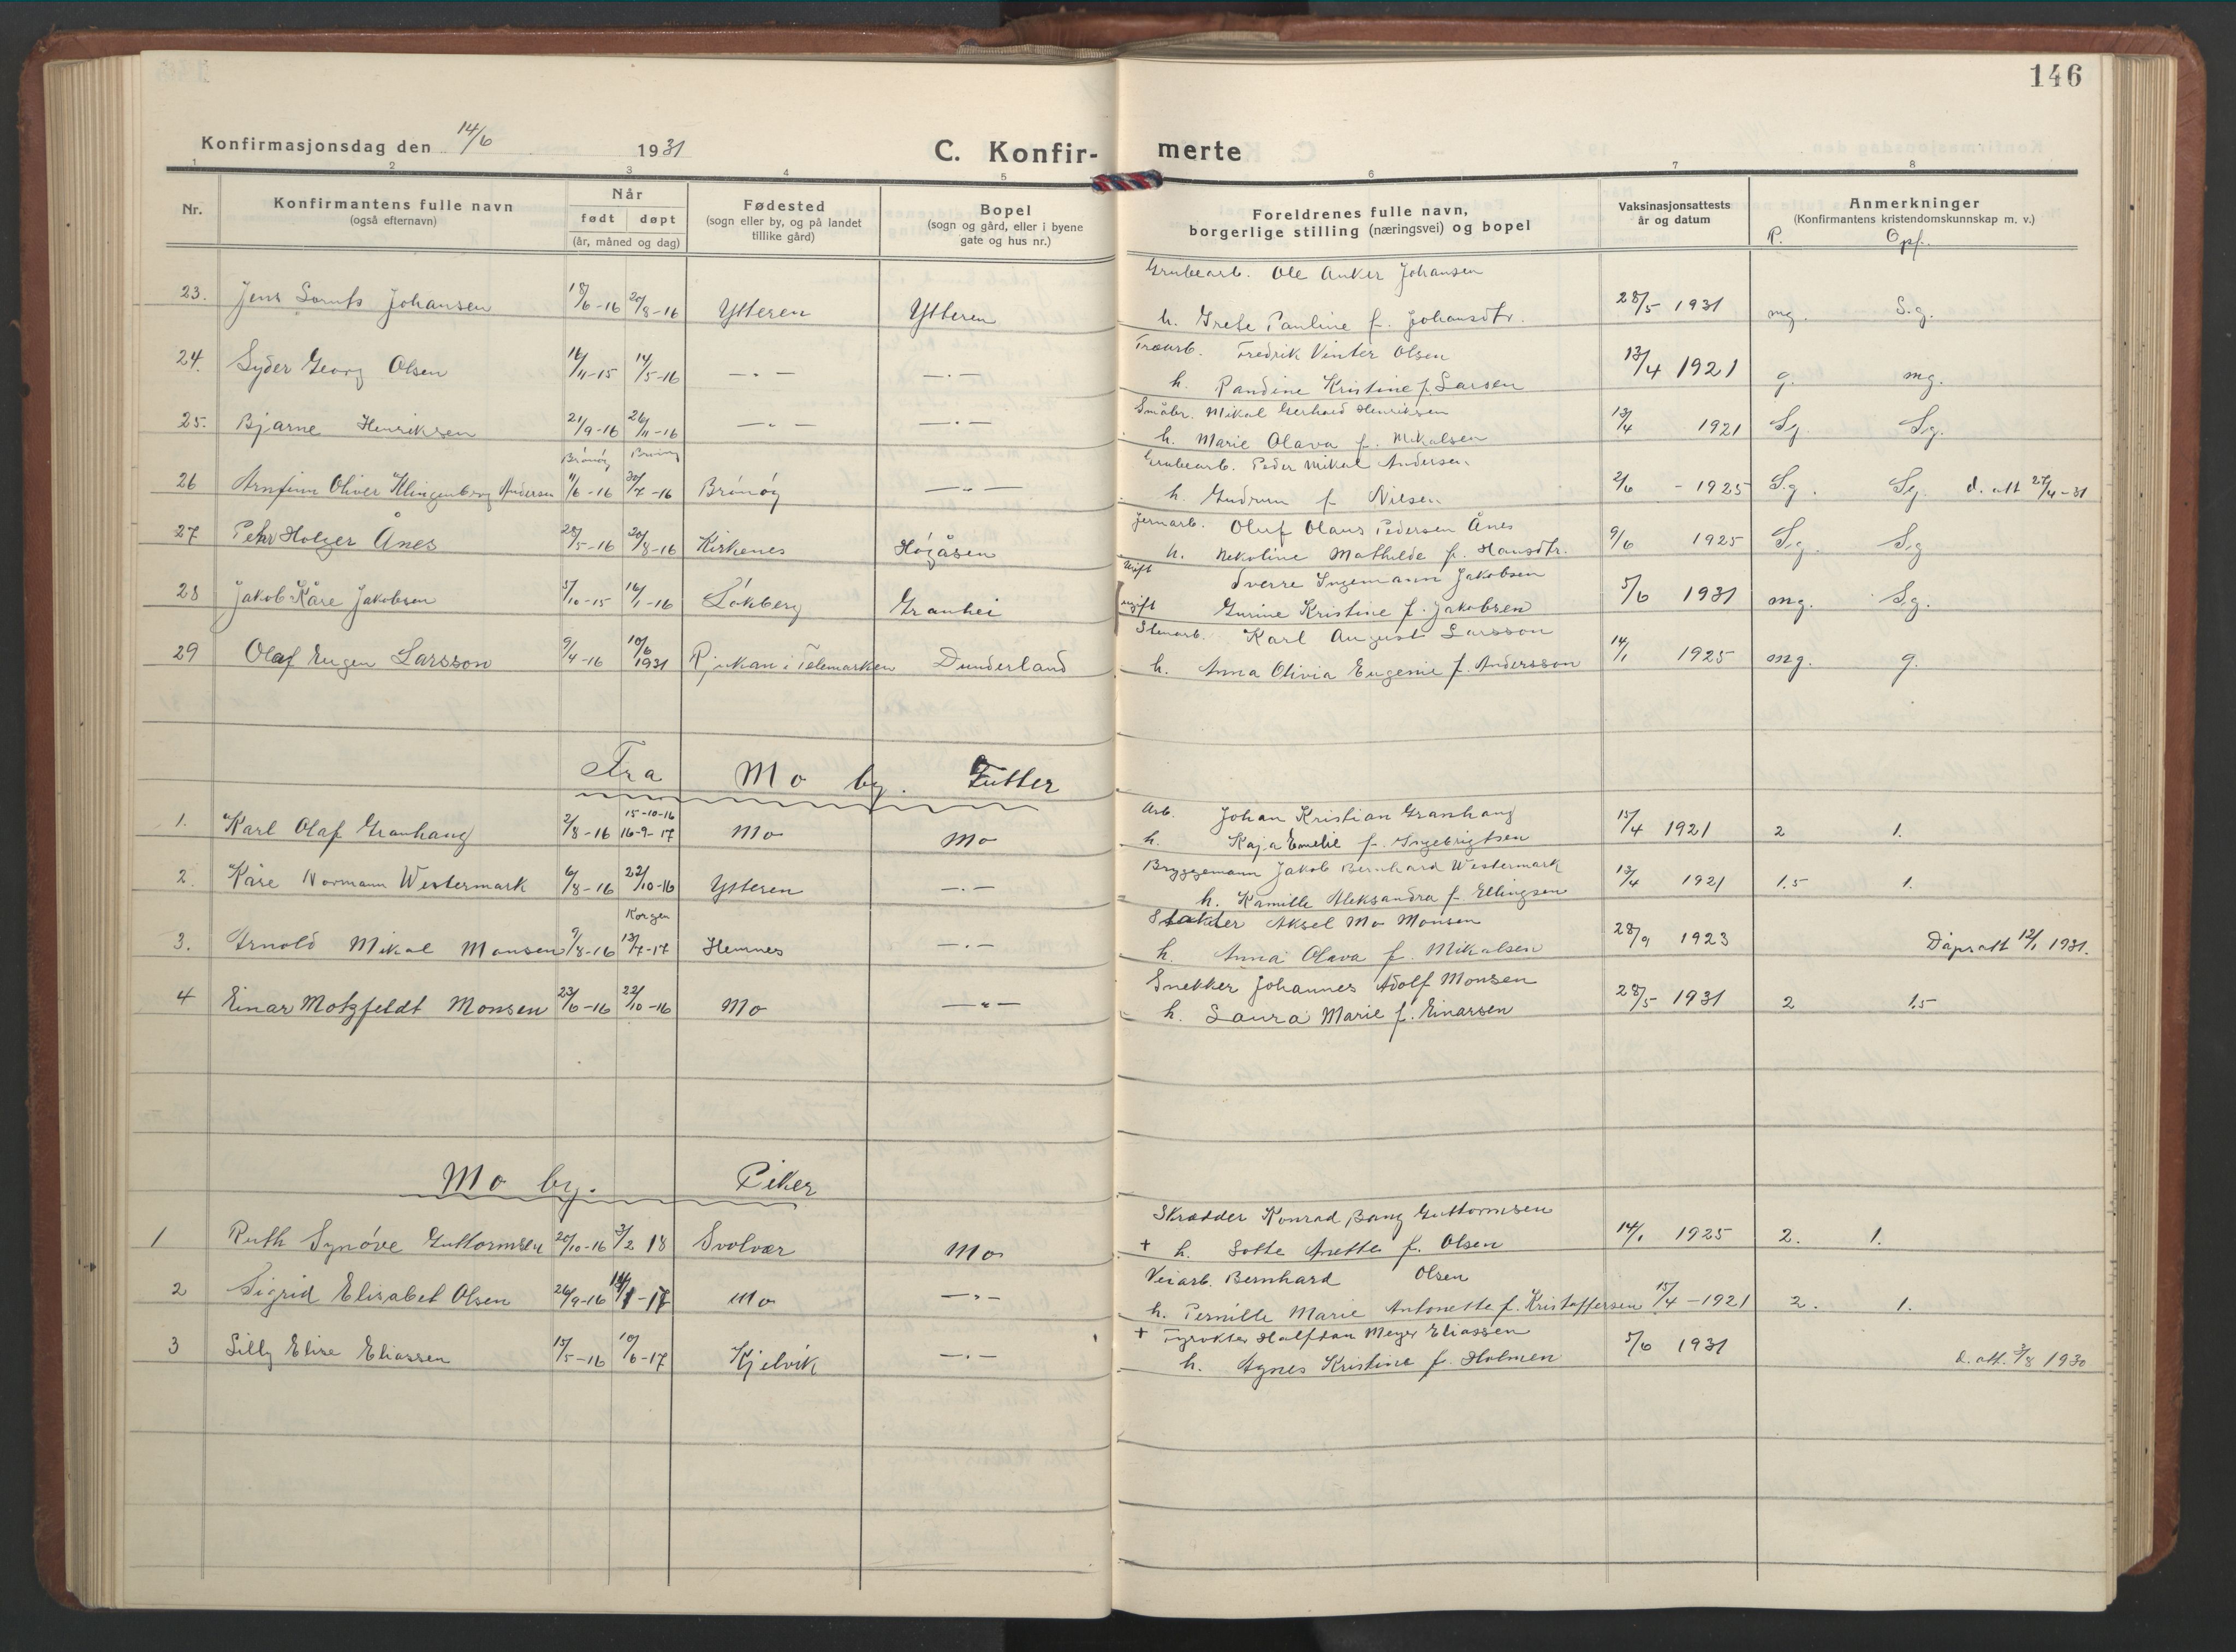 146
Konfirmasjonsdag den 14/6 1931
C. Konfir-merte
1 2 3 4 5 6 7 8
Nr. Konfirmantens fulle navn (også efternavn) Når født døpt (år, måned og dag) Fødested (sogn eller by, og på landet tillike gård) Bopel (sogn og gård, eller i byene gate og hus nr.) Foreldrenes fulle navn, borgerlige stilling (næringsvei) og bopel Vaksinasjonsattests år og datum Anmerkninger (Konfirmantens kristendomskunnskap m. v.)
P. Opf.
Grubearb. Ole Anker Johansen
23. Jens Johansen 18/6-16 20/8-16 Ytteren Ytteren h. Grete Pauline f. Johansdtr. 28/5 1931 mg. S.g.
Træarb. Fredrik Vinter Olsen
24. Syder Georg Olsen 16/11-15 14/5-16 —"— —"— h. Randine Kristine f. Larsen 13/4 1921 g. mg.
Småbr. Mikal Gerhard Henriksen
25. Bjarne Henriksen 21/9-16 26/11-16 —"— —"— h. Marie Olava f. Mikalsen 13/4 1921 Sg. Sg.
Brönöy Grubearb. Peder Mikal Andersen
26 Arnfinn Oliver Klingenberg Andersen 11/6-16 30/7-16 Brönöy —"— h. Gudrun f. Nilsen 2/6 - 1925 S.g. Sg. d. att 27/4-31
Jernarb. Oluf Olaus Pedersen Ånes
27 Pehr Holger Ånes 28/5-16 20/8-16 Kirkenes Högåsen h. Nekoline Mathilde f. Hansdtr. 9/6 1925 S.g. S.g
Ugift Sverre Ingemann Jakobsen
28 Jakob Kåre Jakobsen 3/10-15 16/1-16 Lökberg Granhei ugift Gurine Kristine f. Jakobsen 5/6 1931 mg. S.g.
Stenarb. Karl August Larsson
29 Olaf Eugen Larsson 9/4-16 10/6 1931 Rjukan i Telemarken Dunderland h. Anna Olivia Eugenie f. Andersson 14/1 1925 mg. g.
Fra Mo by. Gutter
15-10-16 Arb. Johan Kristian Granhaug
1. Karl Olaf Granhaug 2/8-16 16-9-17 Mo Mo h. Kaja Emelie f. Ingebrigtsen 15/4 1921 2 1.
Bryggemann Jakob Bernhard Westermark
2. Kåre Normann Westermark 6/8-16 22/10-16 Ytteren —"— h. Kamille Aleksandra f. Ellingsen 13/4 1921 1.5 1.
Korgen Slakter Aksel Mo Monsen
3. Arnold Mikal Monsen 9/8-16 13/7-17 Hemnes —"— h. Anna Olava f. Mikalsen 28/9 1923 Dåpsatt 12/1 1931.
Snekker Johannes Adolf Monsen
4 Einar Motzfeldt Monsen 23/6-16 22/10-16 Mo —"— h. Laura Marie f. Einarsen 28/5 1931 2 1.5
Mo by. Piker
Skrædder Konrad Bang Guttormsen
1 Ruth Synöve Guttormsen 20/10-16 3/2 18 Svolvær Mo + h. Lotte Anette f. Olsen 14/1 1925 2. 1.
Veiarb. Bernhard Olsen
2 Sigrid Elisabet Olsen 26/9-16 14/1-17 Mo —"— h. Pernille Marie Antonette f. Kristoffersen 15/4-1921 2. 1.
+ Fyrvokter Halfdan Meyer Eliassen
3 Lilly Elise Eliassen 15/5-16 10/6-17 Kjelvik —"— h. Agnes Kristine f. Holmen 5/6 1931 d. att. 3/8 1930